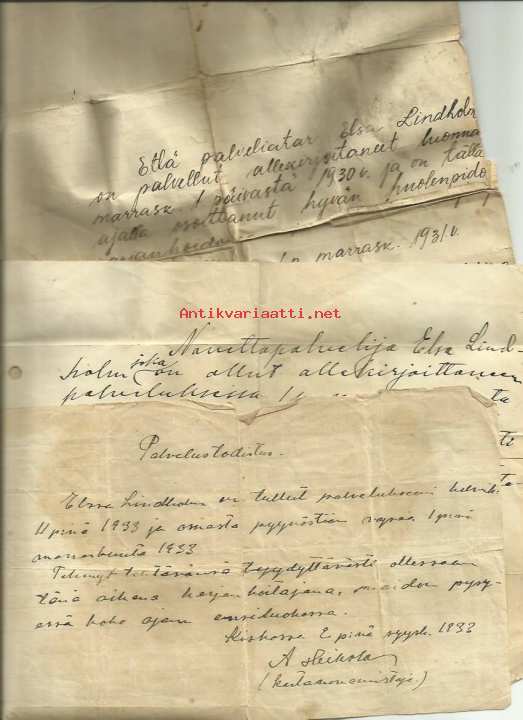 Että palveliatar Elsa Lindholm
on palvellut allekirjoitaneet luonna
marrask. 1 päivästä 1930 v. ja on tällä
ajalla osoittanut hyvän huolenpido
marrask. 1931 v.
Antikvariaatti.net
Navettapalvelija Elsa Lind-
holm joka on ollut allekirjoittaneen
palveluksessa
Palvelustodistus.
Elsa Lindholm on tullut palvelukseeni
11 pnä 1933 ja omasta pyynöstään vapaa 1 pnä
1933
Tehnyt tehtävänsä tyydyttävästi ollessaan
tänä aikana karjanhoitajana, maidon pysy-
essä koko ajan ensiluokassa.
Kiskossa 2 pnä syysk. 1933
A Heikola